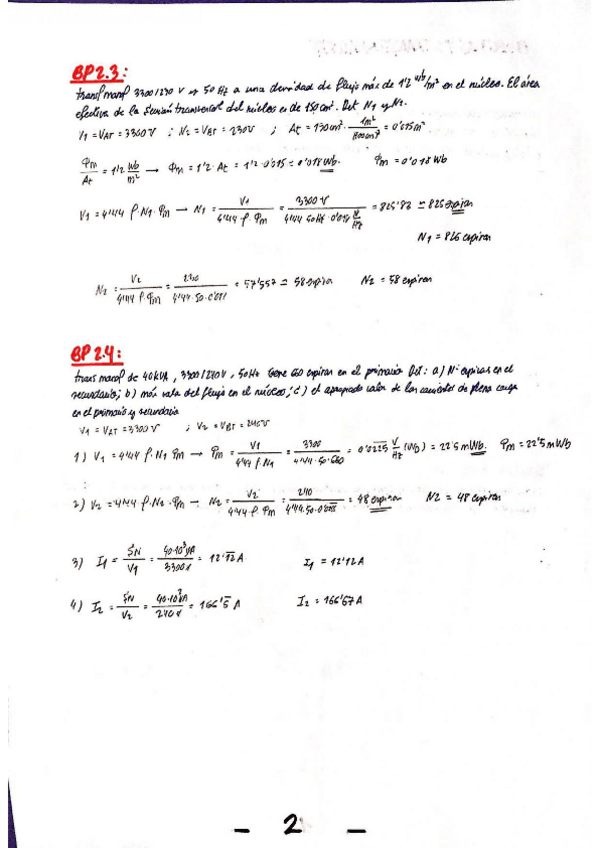 BP2.3:
transf monof 3300/230 V 50 Hz a una densidad de flujo máx de 1'2 Wb/m² en el núcleo. El área
efectiva de la sección transversal del núcleo es de 150 cm². Det N1 y N2.
V1 = VAT = 3300 V ; V2 = VBT = 230V ; At = 150cm² · 1m²/10000cm² = 0'015m²
Φm/At = 1'2 Wb/m² → Φm = 1'2 · At = 1'2 · 0'015 = 0'018 Wb. Φm = 0'018 Wb
V1 = 4'44 f · N1 · Φm → N1 = V1/4'44 f · Φm = 3300 V/4'44 50Hz · 0'018 V/Hz = 825'83 ≃ 826 espiras
N1 = 826 espiras
N2 = V2/4'44 f · Φm = 230/4'44 · 50 · 0'018 = 57'557 ≃ 58 espiras N2 = 58 espiras
BP 2.4:
trans monof de 40kVA, 3300/240V, 50Hz tiene 660 espiras en el primario Det: a) Nº espiras en el
secundario; b) máx vala del flujo en el núcleo; c) el apropiado valor de las corrientes de plena carga
en el primario y secundario
V1 = VAT = 3300 V ; V2 = VBT = 240V
1) V1 = 4'44 f · N1 Φm → Φm = V1/4'44 f · N1 = 3300/4'44 · 50 · 660 = 0'0225 V/Hz (Wb) = 22'5 mWb. Φm = 22'5 mWb
2) V2 = 4'44 f · N2 · Φm → N2 = V2/4'44 f · Φm = 240/4'44 · 50 · 0'0225 = 48 espiras N2 = 48 espiras
3) I1 = SN/V1 = 40·10³VA/3300V = 12'12 A. I1 = 12'12 A
4) I2 = SN/V2 = 40·10³VA/240V = 166'5 A I2 = 166'57 A
- 2 -